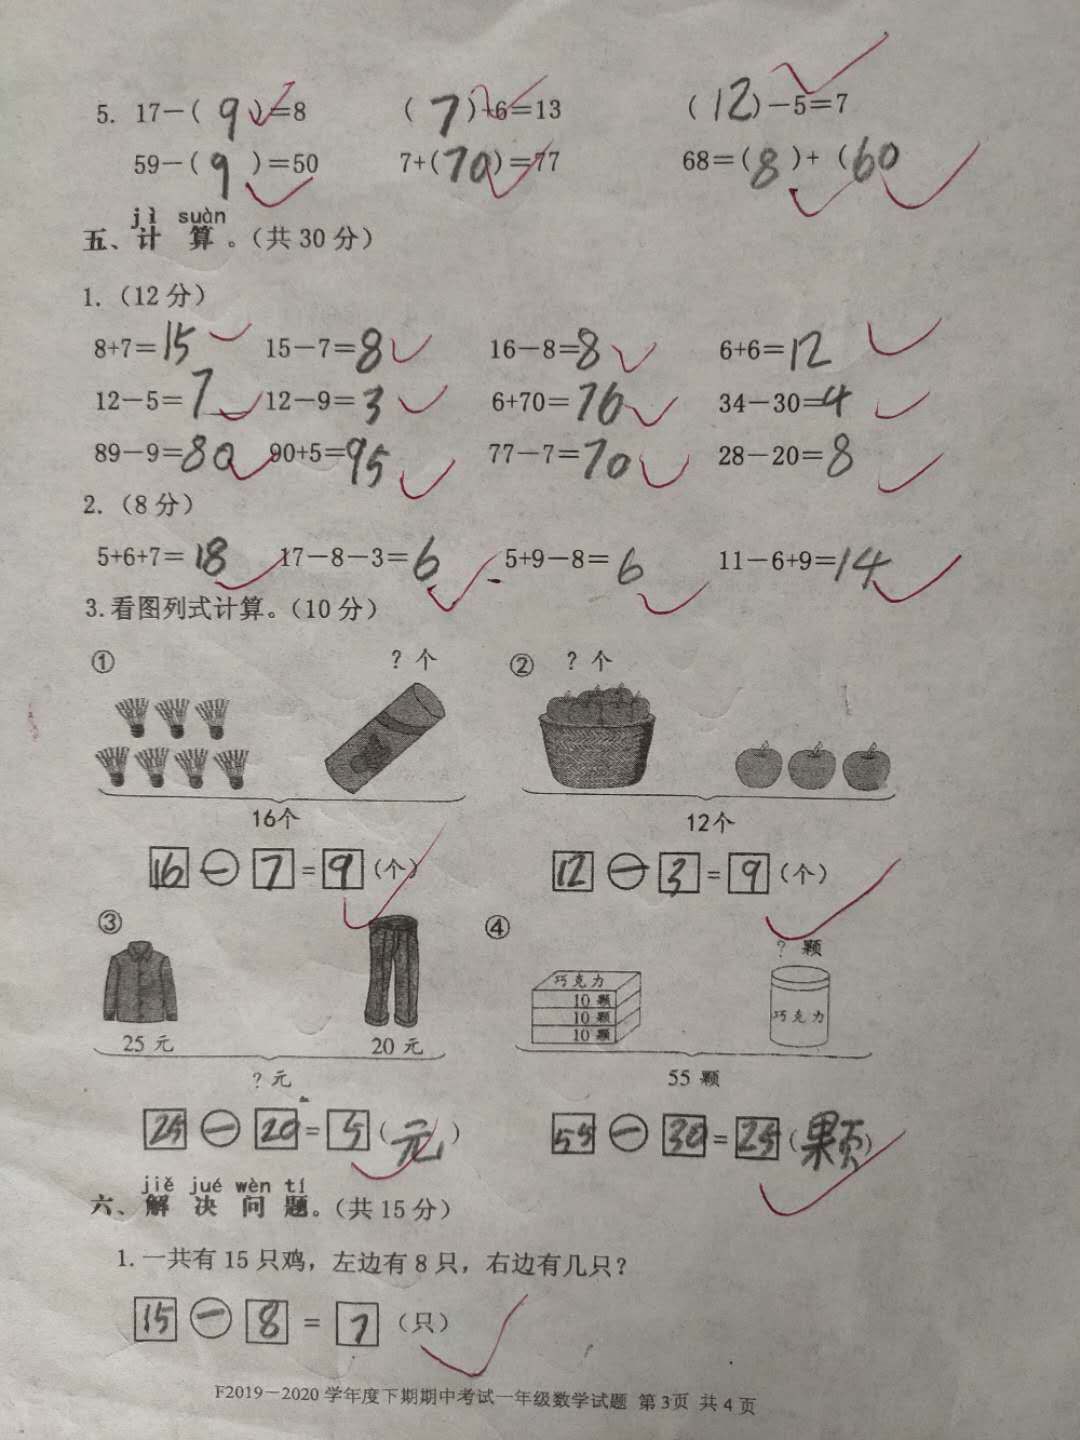 5. 17－( 9 )＝8 ( 7 )+6＝13 ( 12 )－5＝7
59－( 9 )＝50 7+( 70 )＝77 68＝( 8 )+ ( 60
jì suàn
五、计 算 。（共 30 分）
1.（12 分）
8+7＝15 15－7＝8 16－8＝8 6+6＝12
12－5＝7 12－9＝3 6+70＝76 34－30＝4
89－9＝80 90+5＝95 77－7＝70 28－20＝8
2.（8 分）
5+6+7＝18 17－8－3＝6 5+9－8＝6 11－6+9＝14
3.看图列式计算。（10 分）
① ？个 ② ？个
16个 12个
16 － 7 = 9 （个） 12 － 3 = 9 （个）
③ ④
？颗
巧克力
10 颗
10 颗
10 颗
巧克力
25 元 20 元
？元 55 颗
25 － 20 = 5 （元） 55 － 30 = 25 （颗）
jiě jué wèn tí
六、解 决 问 题。（共 15 分）
1.一共有 15 只鸡，左边有 8 只，右边有几只？
15 － 8 = 7 （只）
F2019－2020 学年度下期期中考试一年级数学试题 第 3页 共 4 页